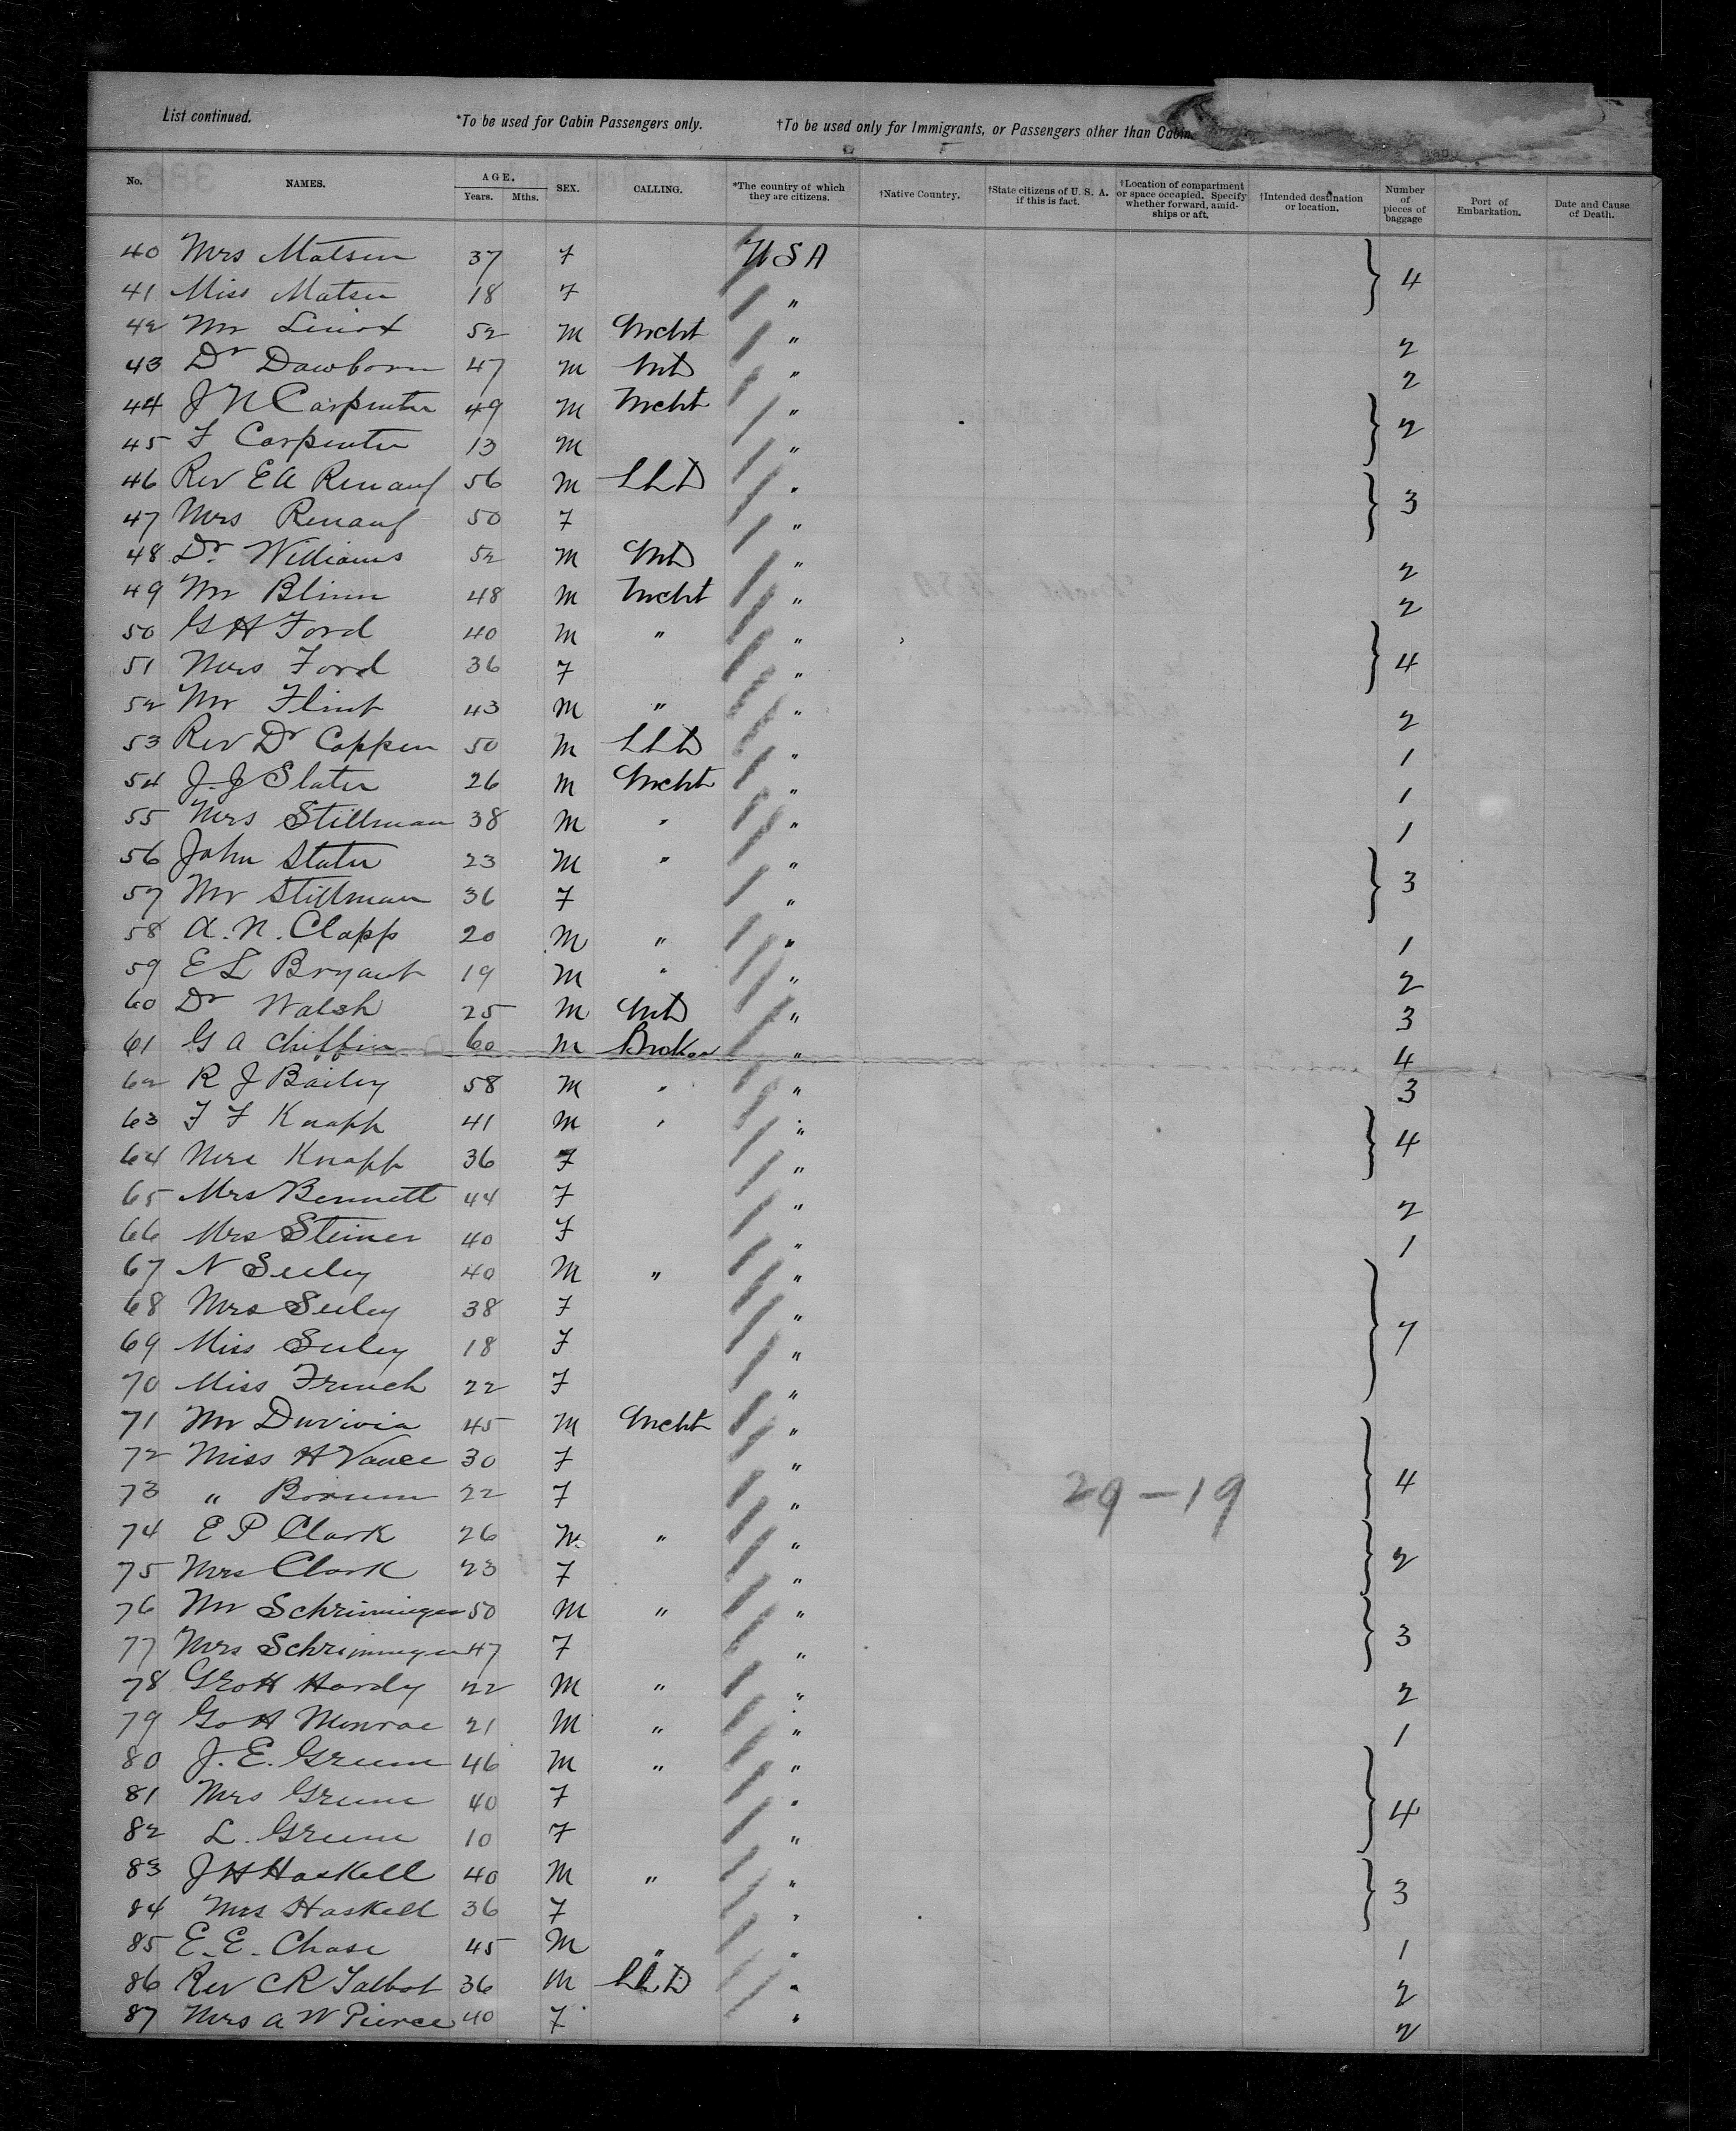 List continued. *To be used for Cabin Passengers only. †To be used only for Immigrants, or Passengers other than Cabin.
No. NAMES. AGE. Years. Mths. SEX. CALLING. *The country of which they are citizens. †Native Country. †State citizens of U. S. A. if this is fact. †Location of compartment or space occupied. Specify whether forward, amid-ships or aft. †Intended destination or location. Number of pieces of baggage Port of Embarkation. Date and Cause of Death.
40 Mrs Matson 37 F USA } 4
41 Miss Matson 18 F "
42 Mr 52 M Mcht " 2
43 Dr Dawborn 47 M MD " 2
44 J N Carpenter 49 M Mcht " } 2
45 F Carpenter 13 M "
46 Rev E A Renauf 56 M LLD " } 3
47 Mrs Renauf 50 F "
48 Dr. Williams 52 M MD " 2
49 Mr Blinn 48 M Mcht " 2
50 G H Ford 40 M " " } 4
51 Mrs Ford 36 F "
52 Mr Flint 43 M " " 2
53 Rev Dr Coppen 50 M LLD " 1
54 J. J Slater 26 M Mcht " 1
55 Mrs Stillman 38 M " " 1
56 John Slater 23 M " " } 3
57 Mr Stillman 36 F "
58 A. N. Clapp 20 M " " 1
59 E L Bryant 19 M " " 2
60 Dr Walsh 25 M MD " 3
61 G A Chiffin 60 M Broker " 4
62 R J Bailey 58 M " " 3
63 F F Knapp 41 M " " } 4
64 Mrs Knapp 36 F "
65 Mrs Bennett 44 F " 2
66 Mrs Steiner 40 F " 1
67 N Seeley 40 M " " } 7
68 Mrs Seeley 38 F "
69 Miss Seeley 18 F "
70 Miss French 22 F "
71 Mr 45 M Mcht " } 4
72 Miss H Vance 30 F "
73 " Borum 22 F " 29-19
74 E P Clark 26 M " " } 2
75 Mrs Clark 23 F "
76 Mr Schrimminger 50 M " " } 3
77 Mrs Schrimminger 47 F "
78 Geo H Hardy 22 M " " 2
79 Go H Monroe 21 M " " 1
80 J. E. Greene 46 M " " } 4
81 Mrs Greene 40 F "
82 L. Greene 10 F "
83 J H Haskell 40 M " " } 3
84 Mrs Haskell 36 F "
85 E. E. Chase 45 M " " 1
86 Rev C R Talbot 36 M LL.D " 2
87 Mrs A W Pierce 40 F " 2